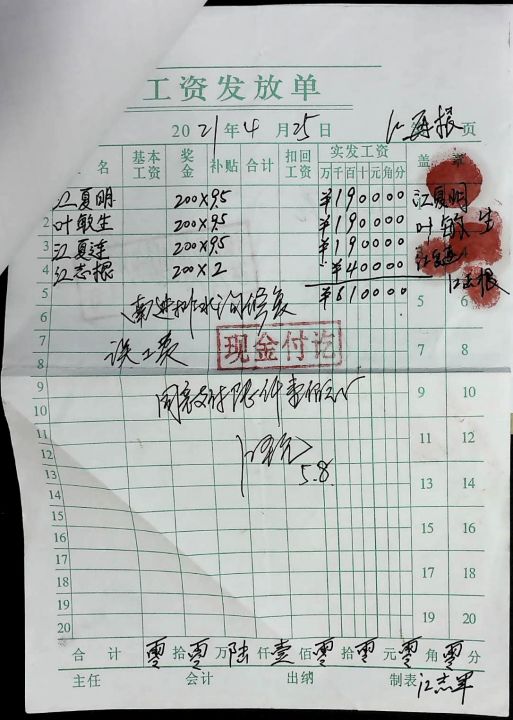 工资发放单
2021年4月25日 页
名 基本工资 奖金 补贴 合计 扣回工资 实发工资 万千百十元角分 盖章
江夏明 200×9.5 ¥190000 江夏明
2 叶敏生 200×9.5 ¥190000 叶敏生
3 江夏连 200×9.5 ¥190000
4 江志根 200×2 ¥40000 江志根
5 ¥610000 5 6
6
7 误工费 现金付讫 7 8
8
9 同意支付 9 10
10
11 11 12
12 5.8.
13 13 14
14
15 15 16
16
17 17 18
18
19 19 20
20
合计 零拾零万陆仟壹佰零拾零元零角零分
主任 会计 出纳 制表 江志军